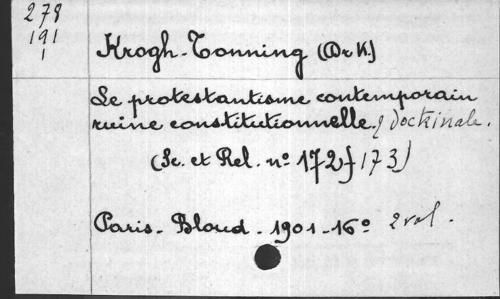 278
191
1
Krogh-Tonning (Dr K.)
Le protestantisme contemporain
ruine constitutionnelle, & doctrinale.
(Sc. et Rel. nº 172 & 173)
Paris - Bloud - 1901 - 16º 2 vol.